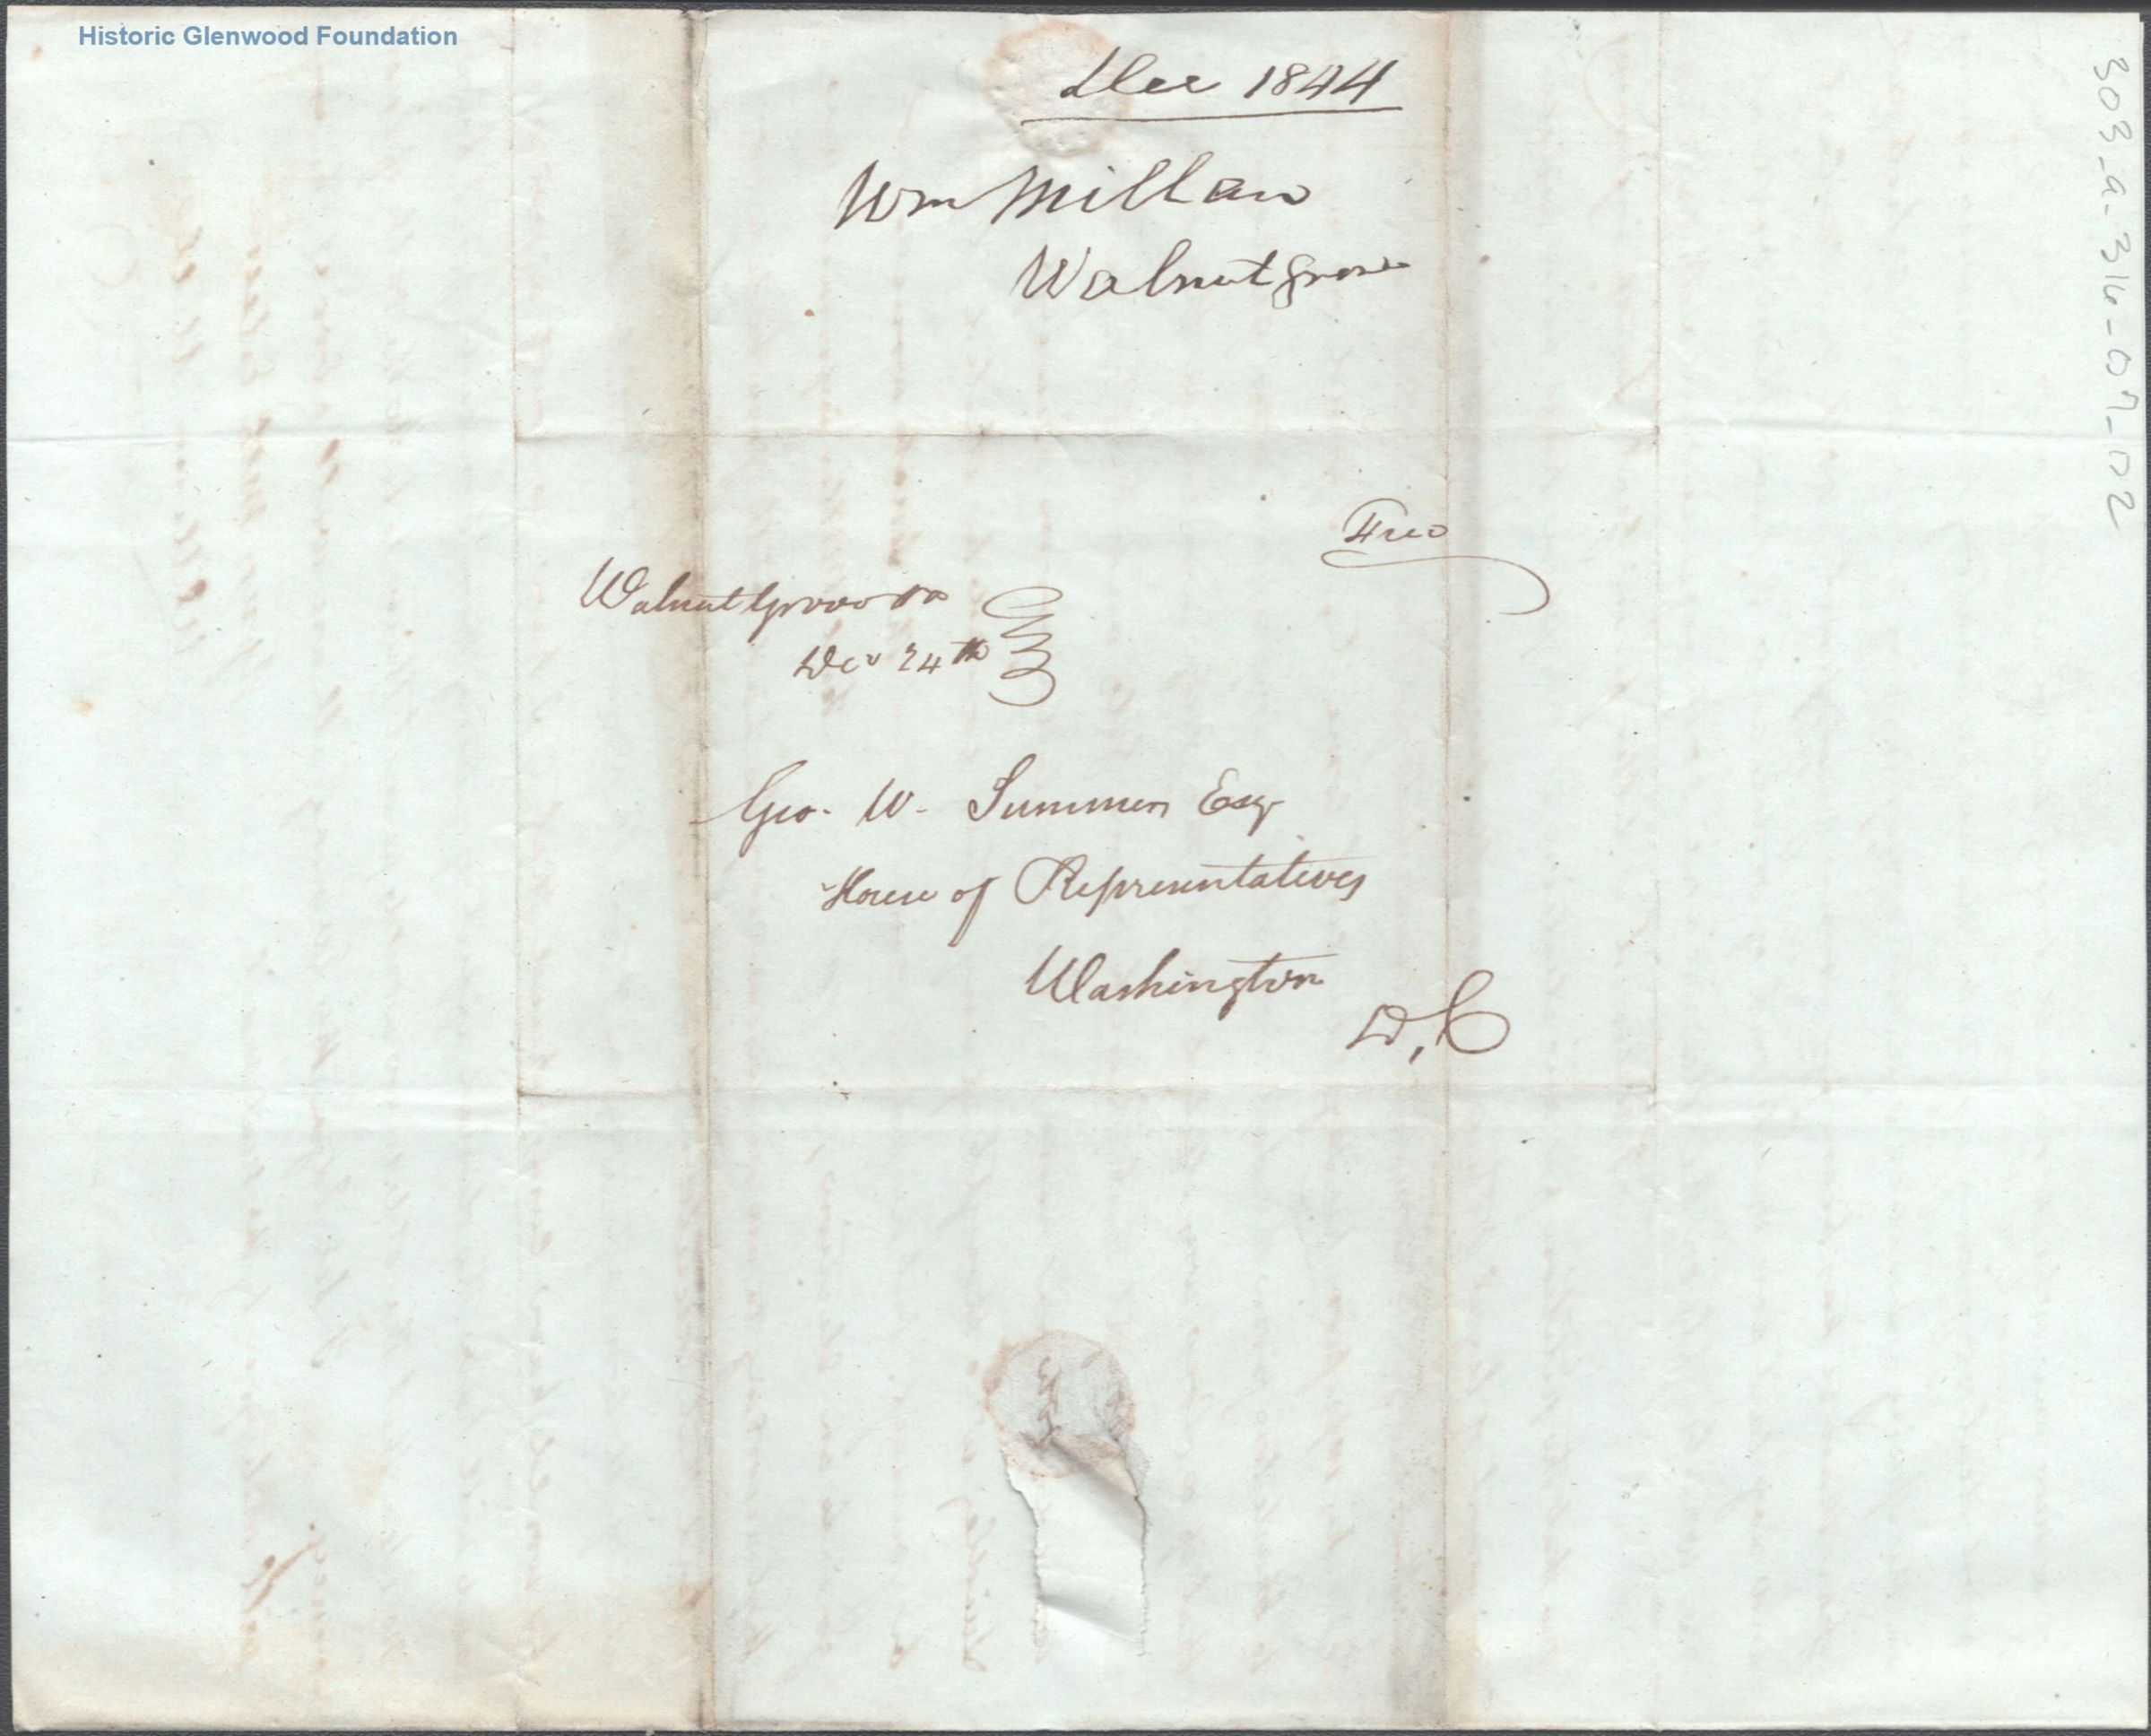 Historic Glenwood Foundation
Dec 1844
Wm Millan
Walnutgrove
Free
Walnut Grove Va
Dec 24th
Geo. W. Summers Esqr
House of Representatives
Washington
D, C
303_a_316_07_102